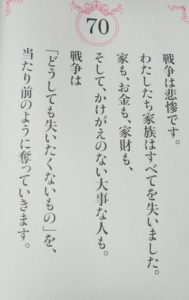 70
戦争は悲惨です。
わたしたち家族はすべてを失いました。
家も、お金も、家財も、
そして、かけがえのない大事な人も。
戦争は
「どうしても失いたくないもの」を、
当たり前のように奪っていきます。